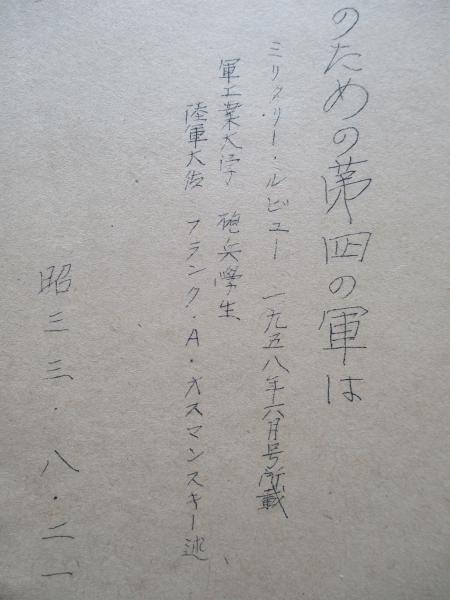 のための第四の軍は
ミリタリー・ルビュー 一九五八年六月号所載
軍工業大学 砲兵學生
陸軍大佐 フランク・A・オスマンスキー述
昭三三・八・二一